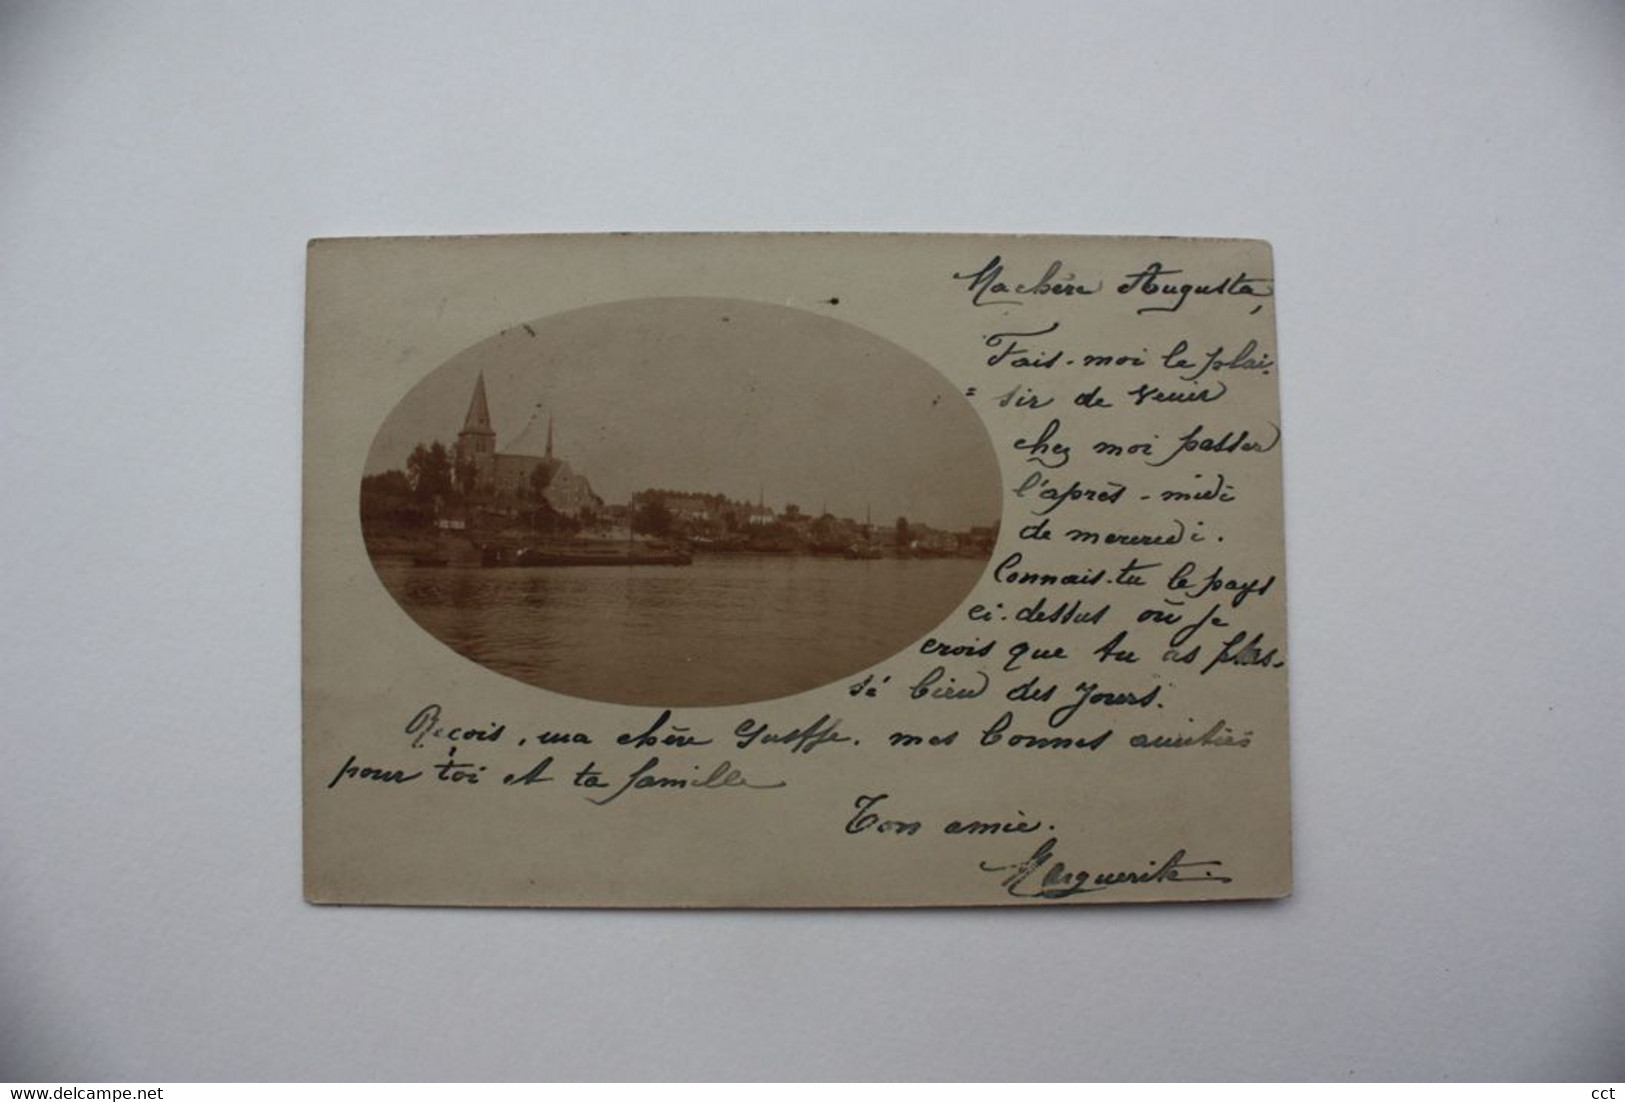 Ma chère Augusta,
Fais-moi le plai-
=sir de venir
chez moi passer
l'après-midi
de mercredi.
Connais-tu le pays
ci-dessus où je
crois que tu as pas-
sé bien des jours.
Reçois, ma chère mes bonnes amitiés
pour toi et ta famille
Ton amie.
Marguerite.
www.delcampe.net
cct